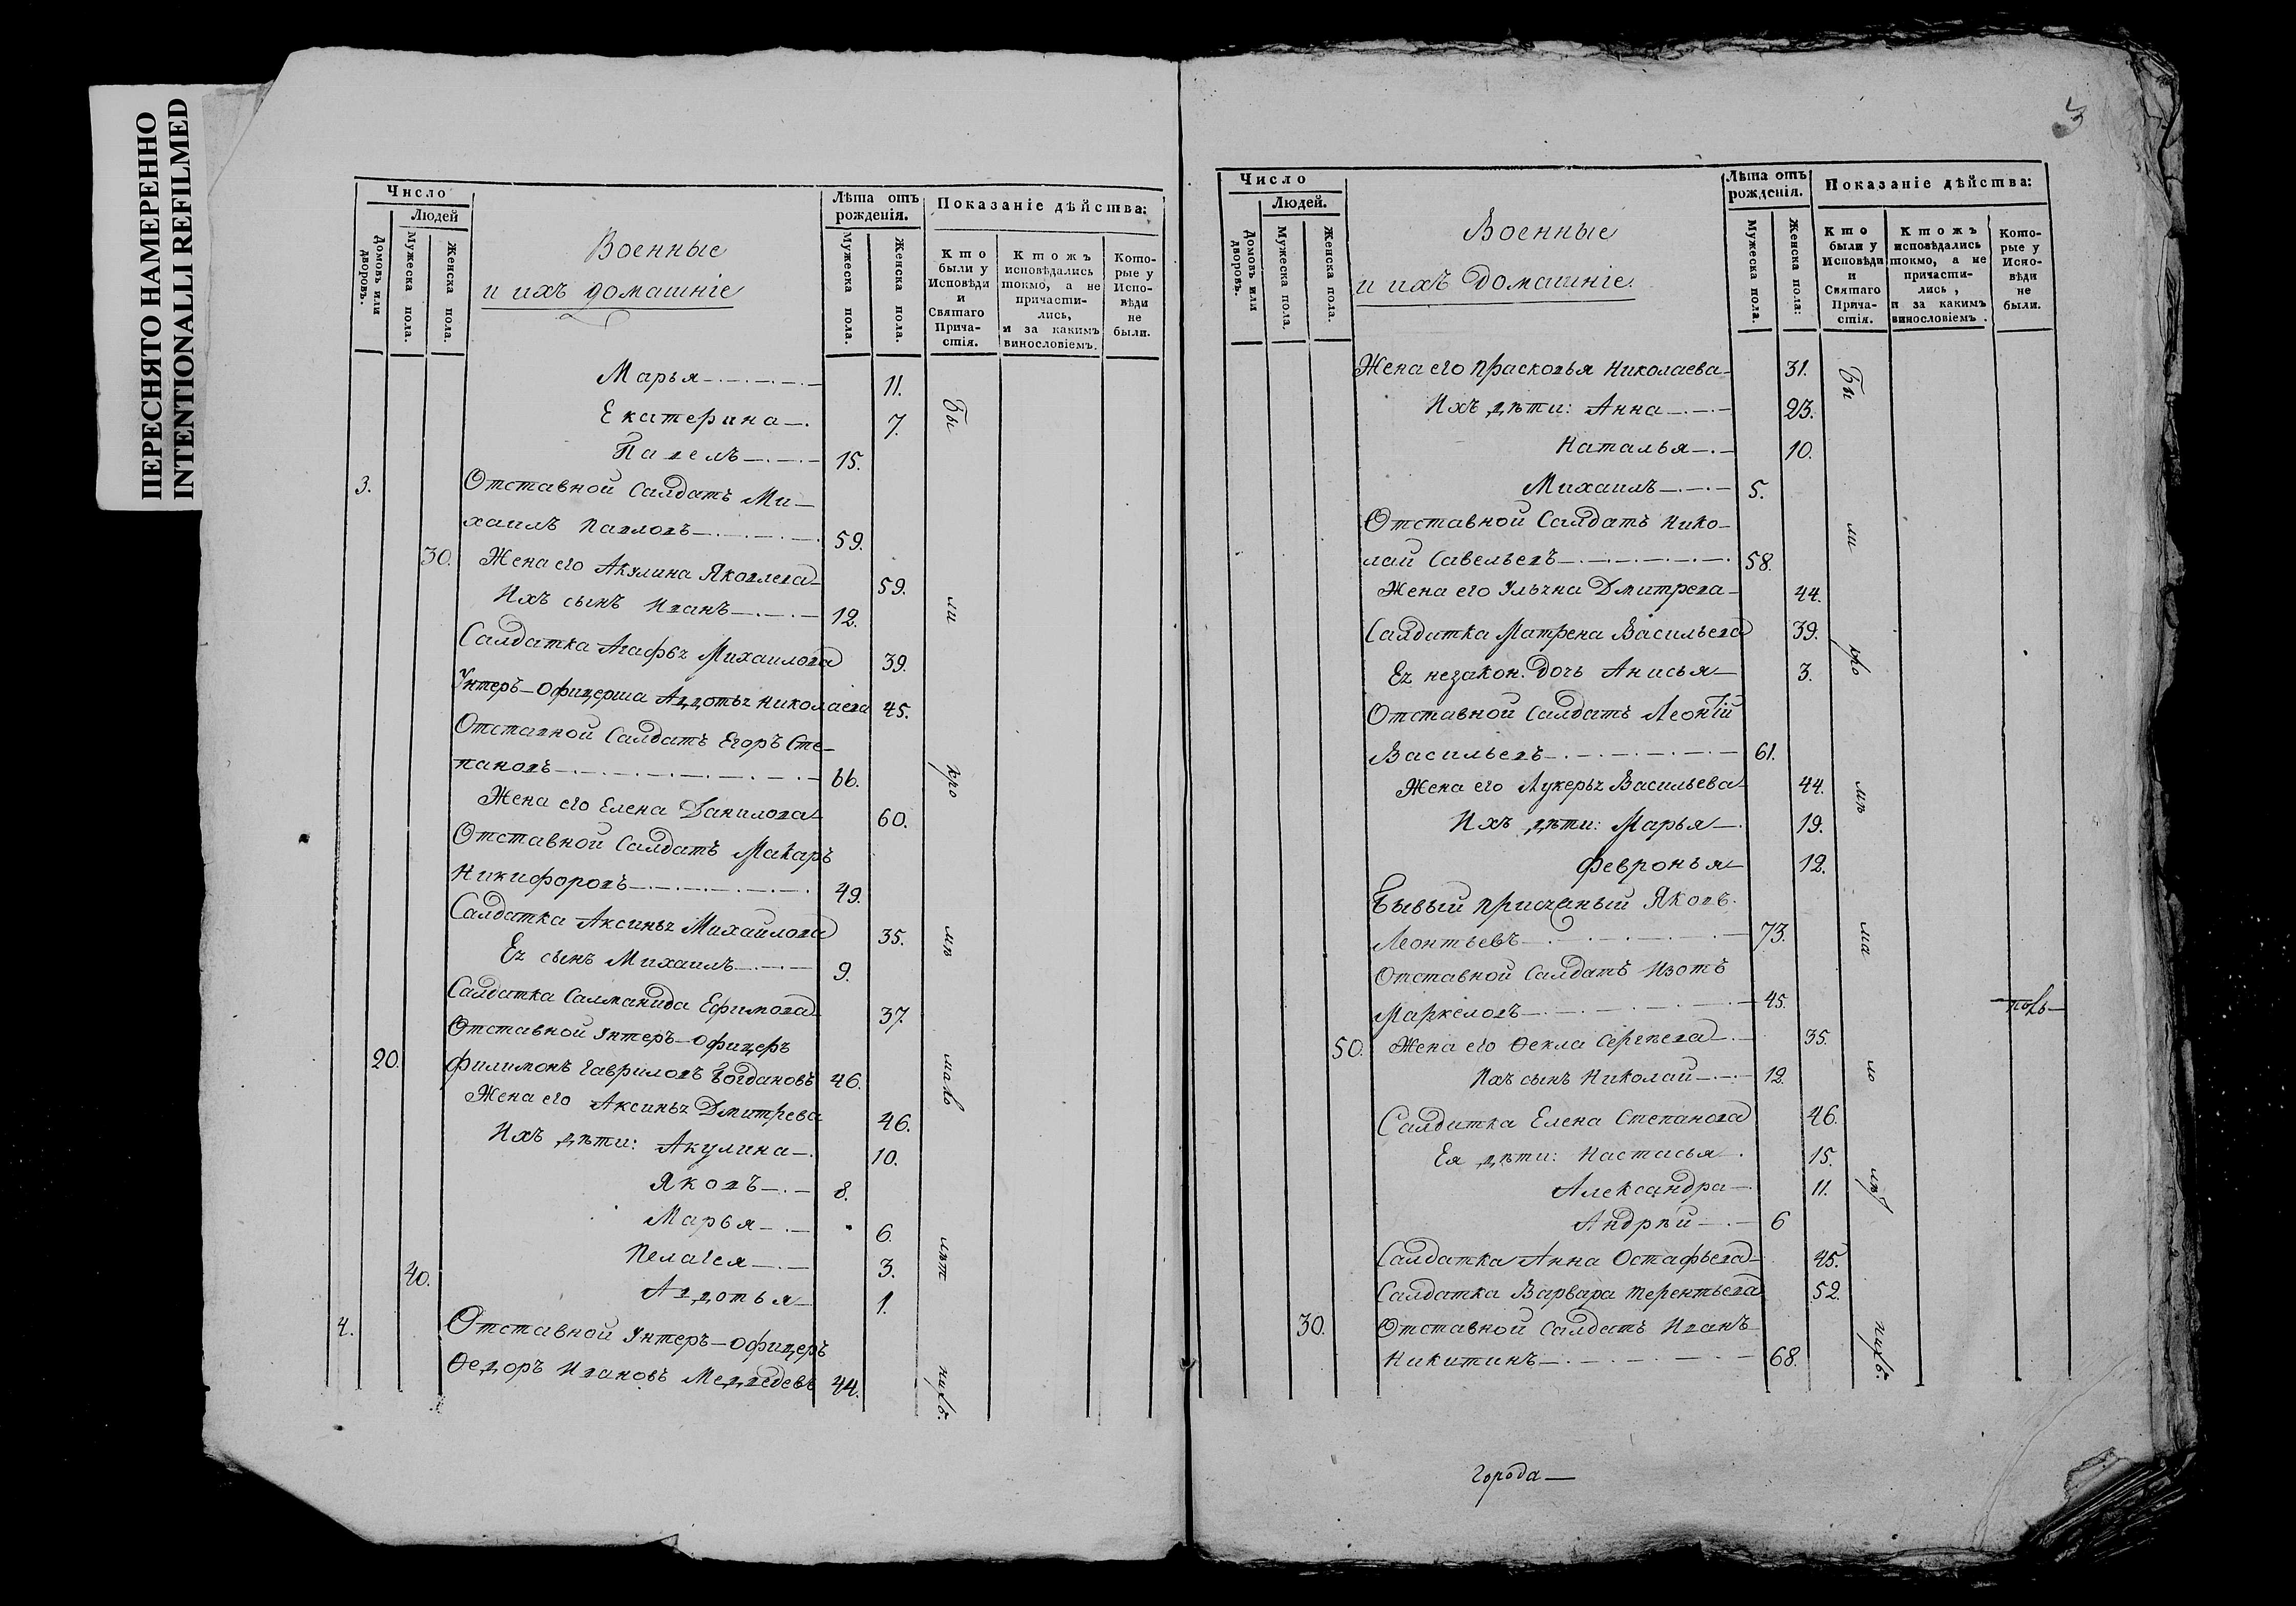 ПЕРЕСНЯТО НАМЕРЕННО
INTENTIONALLI REFILMED
Число
Людей
Домовъ или дворовъ.
Мужеска пола.
Женска пола.
Военные
и ихъ домашніе
Лѣта отъ рожденія.
Мужеска пола.
Женска пола.
Показаніе дѣйства:
Кто были у Исповѣди и Святаго Прича-стія.
Ктожъ исповѣдались токмо, а не причасти-лись, и за какимъ винословіемъ.
Кото-рые у Испо-вѣди не были.
Марья 11.
Екатерина 7.
Павелъ 15.
3. Отставной Салдатъ Ми-
хаилъ Павловъ 59.
30. Жена его Акулина Яковлева 59.
Ихъ сынъ Иванъ 12.
Салдатка Агафья Михаилова 39.
Унтеръ-Офицерша Авдотья Николаева 45.
Отставной Салдатъ Егоръ Сте-
пановъ 66.
Жена его Елена Данилова 60.
Отставной Салдатъ Макаръ
Никифоровъ 49.
Салдатка Аксинья Михайлова 35.
Ея сынъ Михаилъ 9.
Салдатка Салманида Ефимова 37.
Отставной Унтеръ-Офицеръ
20. Филимонъ Гавриловъ Богдановъ 46.
Жена его Аксинья Дмитрева 46.
Ихъ дѣти: Акулина 10.
Яковъ 8.
Марья 6.
Пелагея 3.
40. Авдотья 1.
4. Отставной Унтеръ-Офицеръ
Ѳедоръ Ивановъ Медведевъ 44.
Бы
ли
кро
мѣ
лѣт
нихъ.
3
Число
Людей.
Домовъ или дворовъ.
Мужеска пола.
Женска пола.
Военные
и ихъ домашніе.
Лѣта отъ рожденія.
Мужеска пола.
Женска пола:
Показаніе дѣйства:
Кто были у Исповѣди и Святаго Прича-стія.
Ктожъ исповѣдались токмо, а не причасти-лись, и за какимъ винословіемъ.
Кото-рые у Испо-вѣди не были.
Жена его Прасковья Николаева 31.
Ихъ дѣти: Анна 23.
Наталья 10.
Михаилъ 5.
Отставной Салдатъ Нико-
лай Савельевъ 58.
Жена его Ульяна Дмитрева 44.
Салдатка Матрена Васильева 39.
Ея незакон. дочь Анисья 3.
Отставной Салдатъ Леонтій
Васильевъ 61.
Жена его Лукерья Васильева 44.
Ихъ дѣти: Марья 19.
Февронья 12.
Бывый присяжный Яковъ
Леонтьевъ 73.
Отставной Салдатъ Изотъ
Маркеловъ 45.
50. Жена его Ѳекла Сергѣева 35.
Ихъ сынъ Николай 12.
Салдатка Елена Степанова 46.
Ея дѣти: Настасья 15.
Александра 11.
Андрѣй 6
Салдатка Анна Остафьева 45.
Салдатка Варвара Терентьева 52.
30. Отставной Салдатъ Иванъ
Никитинъ 68.
Бы
ли
кро
мѣ
ма
ло
лѣт
нихъ.
города